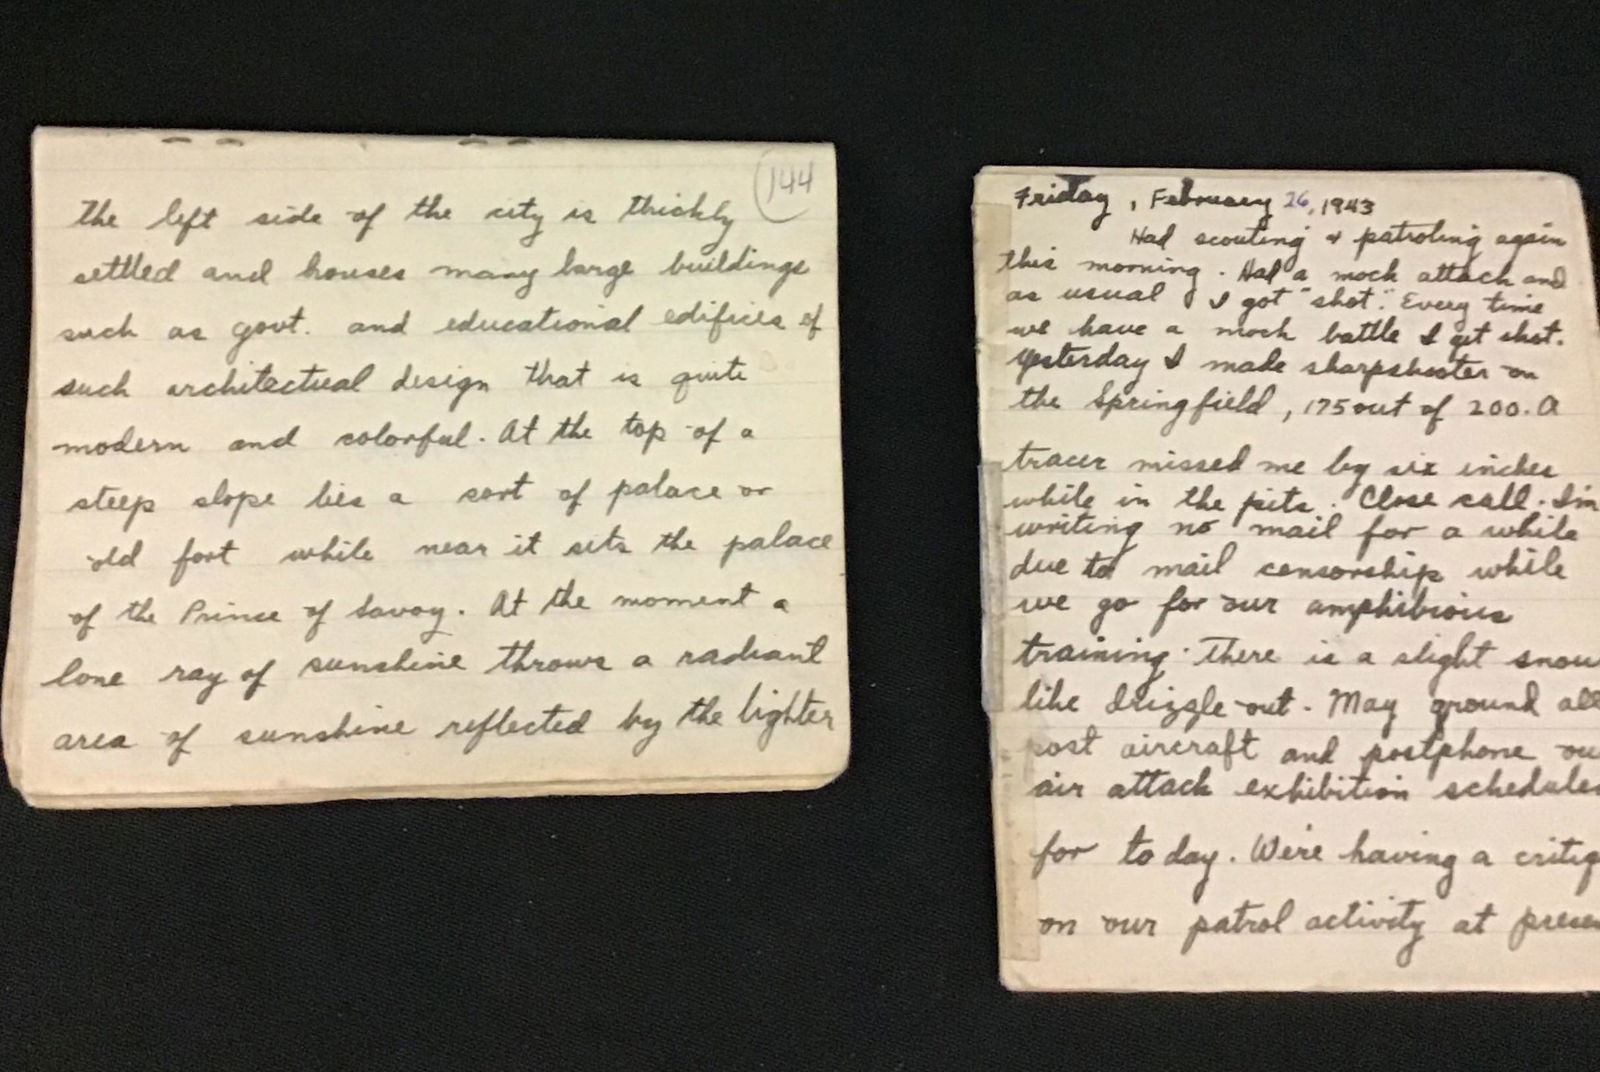 144
The left side of the city is thickly
settled and houses many large buildings
such as govt. and educational edifices of
such architectual design that is quite
modern and colorful. At the top of a
steep slope lies a sort of palace or
old fort while near it sets the palace
of the Prince of Savoy. At the moment a
lone ray of sunshine throws a radiant
area of sunshine reflected by the lighter
Friday, February 26, 1943
Had scouting & patroling again
this morning. Had a mock attack and
as usual I got "shot". Every time
we have a mock battle I get shot.
Yesterday I made sharpshooter on
the Springfield, 175 out of 200. A
tracer missed me by six inches
while in the pits. Close call. I'm
writing no mail for a while
due to mail censorship while
we go for our amphibious
training. There is a slight snow
like drizzle out. May ground all
post aircraft and postphone ou
air attack exhibition schedule
for today. We're having a critiq
on our patrol activity at presen